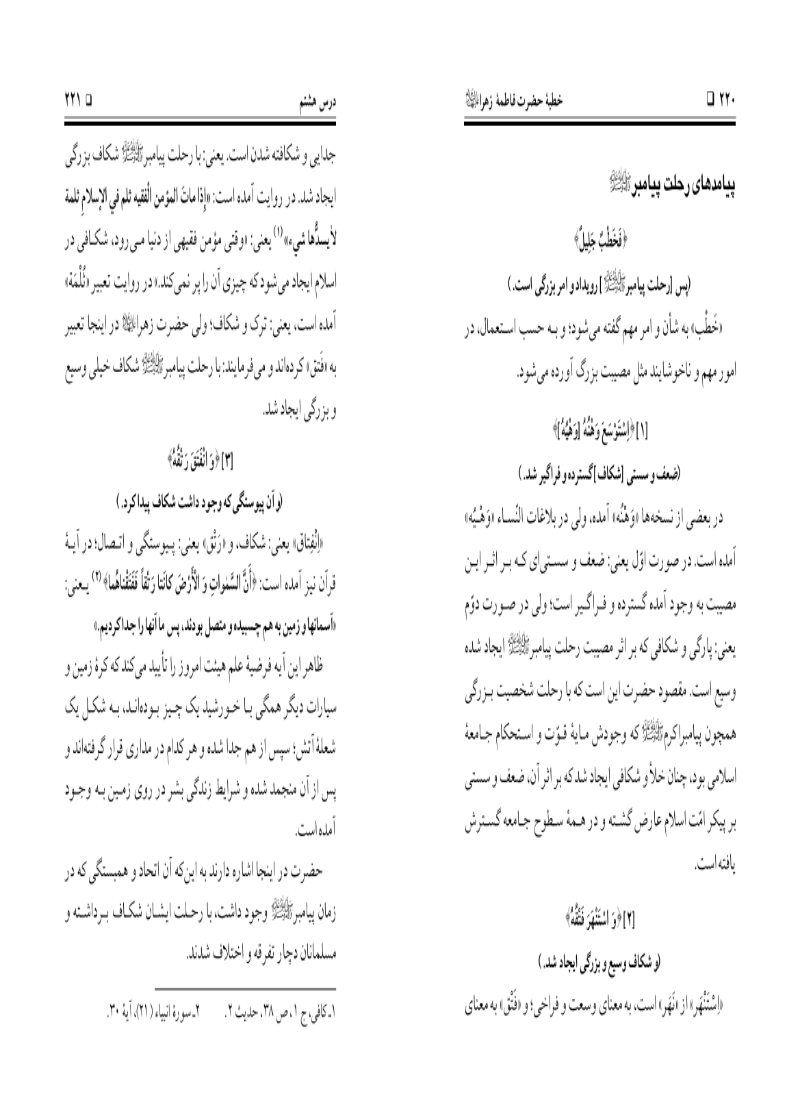 ۲۲۰ ❑ خطبهٔ حضرت فاطمهٔ زهرا
پیامدهای رحلت پیامبرﷺ
﴿فَخَطْبٌ جَلِيلٌ﴾
(پس [رحلت پیامبرﷺ] رویداد و امر بزرگی است.)
«خَطْب» به شأن و امر مهم گفته می‌شود؛ و به حسب استعمال، در
امور مهم و ناخوشایند مثل مصیبت بزرگ آورده می‌شود.
[۱] ﴿اِسْتَوْسَعَ وَهْنُهُ [وَهْيُهُ]﴾
(ضعف و سستی [شکاف] گسترده و فراگیر شد.)
در بعضی از نسخه‌ها «وَهْنُه» آمده، ولی در بلاغات النّساء «وَهْـیُه»
آمده است. در صورت اوّل یعنی: ضعف و سستی‌ای که بر اثر این
مصیبت به وجود آمده گسترده و فراگیر است؛ ولی در صورت دوّم
یعنی: پارگی و شکافی که بر اثر مصیبت رحلت پیامبرﷺ ایجاد شده
وسیع است. مقصود حضرت این است که با رحلت شخصیت بزرگی
همچون پیامبراکرمﷺ که وجودش مایهٔ قوّت و استحکام جامعهٔ
اسلامی بود، چنان خلأ و شکافی ایجاد شد که بر اثر آن، ضعف و سستی
بر پیکر امّت اسلام عارض گشته و در همهٔ سطوح جامعه گسترش
یافته است.
[۲] ﴿وَ اسْتَنْهَرَ فَتْقُهُ﴾
(و شکاف وسیع و بزرگی ایجاد شد.)
«اِسْتَنْهَر» از «نَهَر» است، به معنای وسعت و فراخی؛ و «فَتْق» به معنای
درس هشتم ❑ ۲۲۱
جدایی و شکافته شدن است. یعنی: با رحلت پیامبرﷺ شکاف بزرگی
ایجاد شد. در روایت آمده است: «إذا ماتَ المؤمن الْفقیه ثلم في الإسلام ثلمة
لایسدُّها شيء»(۱) یعنی: «وقتی مؤمن فقیهی از دنیا می‌رود، شکافی در
اسلام ایجاد می‌شود که چیزی آن را پر نمی‌کند.» در روایت تعبیر «ثُلْمَة»
آمده است، یعنی: ترک و شکاف؛ ولی حضرت زهرا در اینجا تعبیر
به «فَتق» کرده‌اند و می‌فرمایند: با رحلت پیامبرﷺ شکاف خیلی وسیع
و بزرگی ایجاد شد.
[۳] ﴿وَ انْفَتَقَ رَتْقُهُ﴾
(و آن پیوستگی که وجود داشت شکاف پیدا کرد.)
«اِنْفِتاق» یعنی: شکاف، و «رَتْق» یعنی: پیوستگی و اتصال؛ در آیهٔ
قرآن نیز آمده است: ﴿أَنَّ السَّمٰواتِ وَ الْأَرْضَ كٰانَتٰا رَتْقاً فَفَتَقْنٰاهُمٰا﴾(۲) یعنی:
«آسمانها و زمین به هم چسبیده و متصل بودند، پس ما آنها را جدا کردیم.»
ظاهر این آیه فرضیهٔ علم هیئت امروز را تأیید می‌کند که کرهٔ زمین و
سیارات دیگر همگی با خورشید یک چیز بوده‌اند، به شکل یک
شعلهٔ آتش؛ سپس از هم جدا شده و هر کدام در مداری قرار گرفته‌اند و
پس از آن منجمد شده و شرایط زندگی بشر در روی زمین به وجود
آمده است.
حضرت در اینجا اشاره دارند به این‌که آن اتحاد و همبستگی که در
زمان پیامبرﷺ وجود داشت، با رحلت ایشان شکاف برداشته و
مسلمانان دچار تفرقه و اختلاف شدند.
۱ـ کافی، ج ۱، ص ۳۸، حدیث ۲. ۲ـ سورهٔ انبیاء (۲۱)، آیهٔ ۳۰.